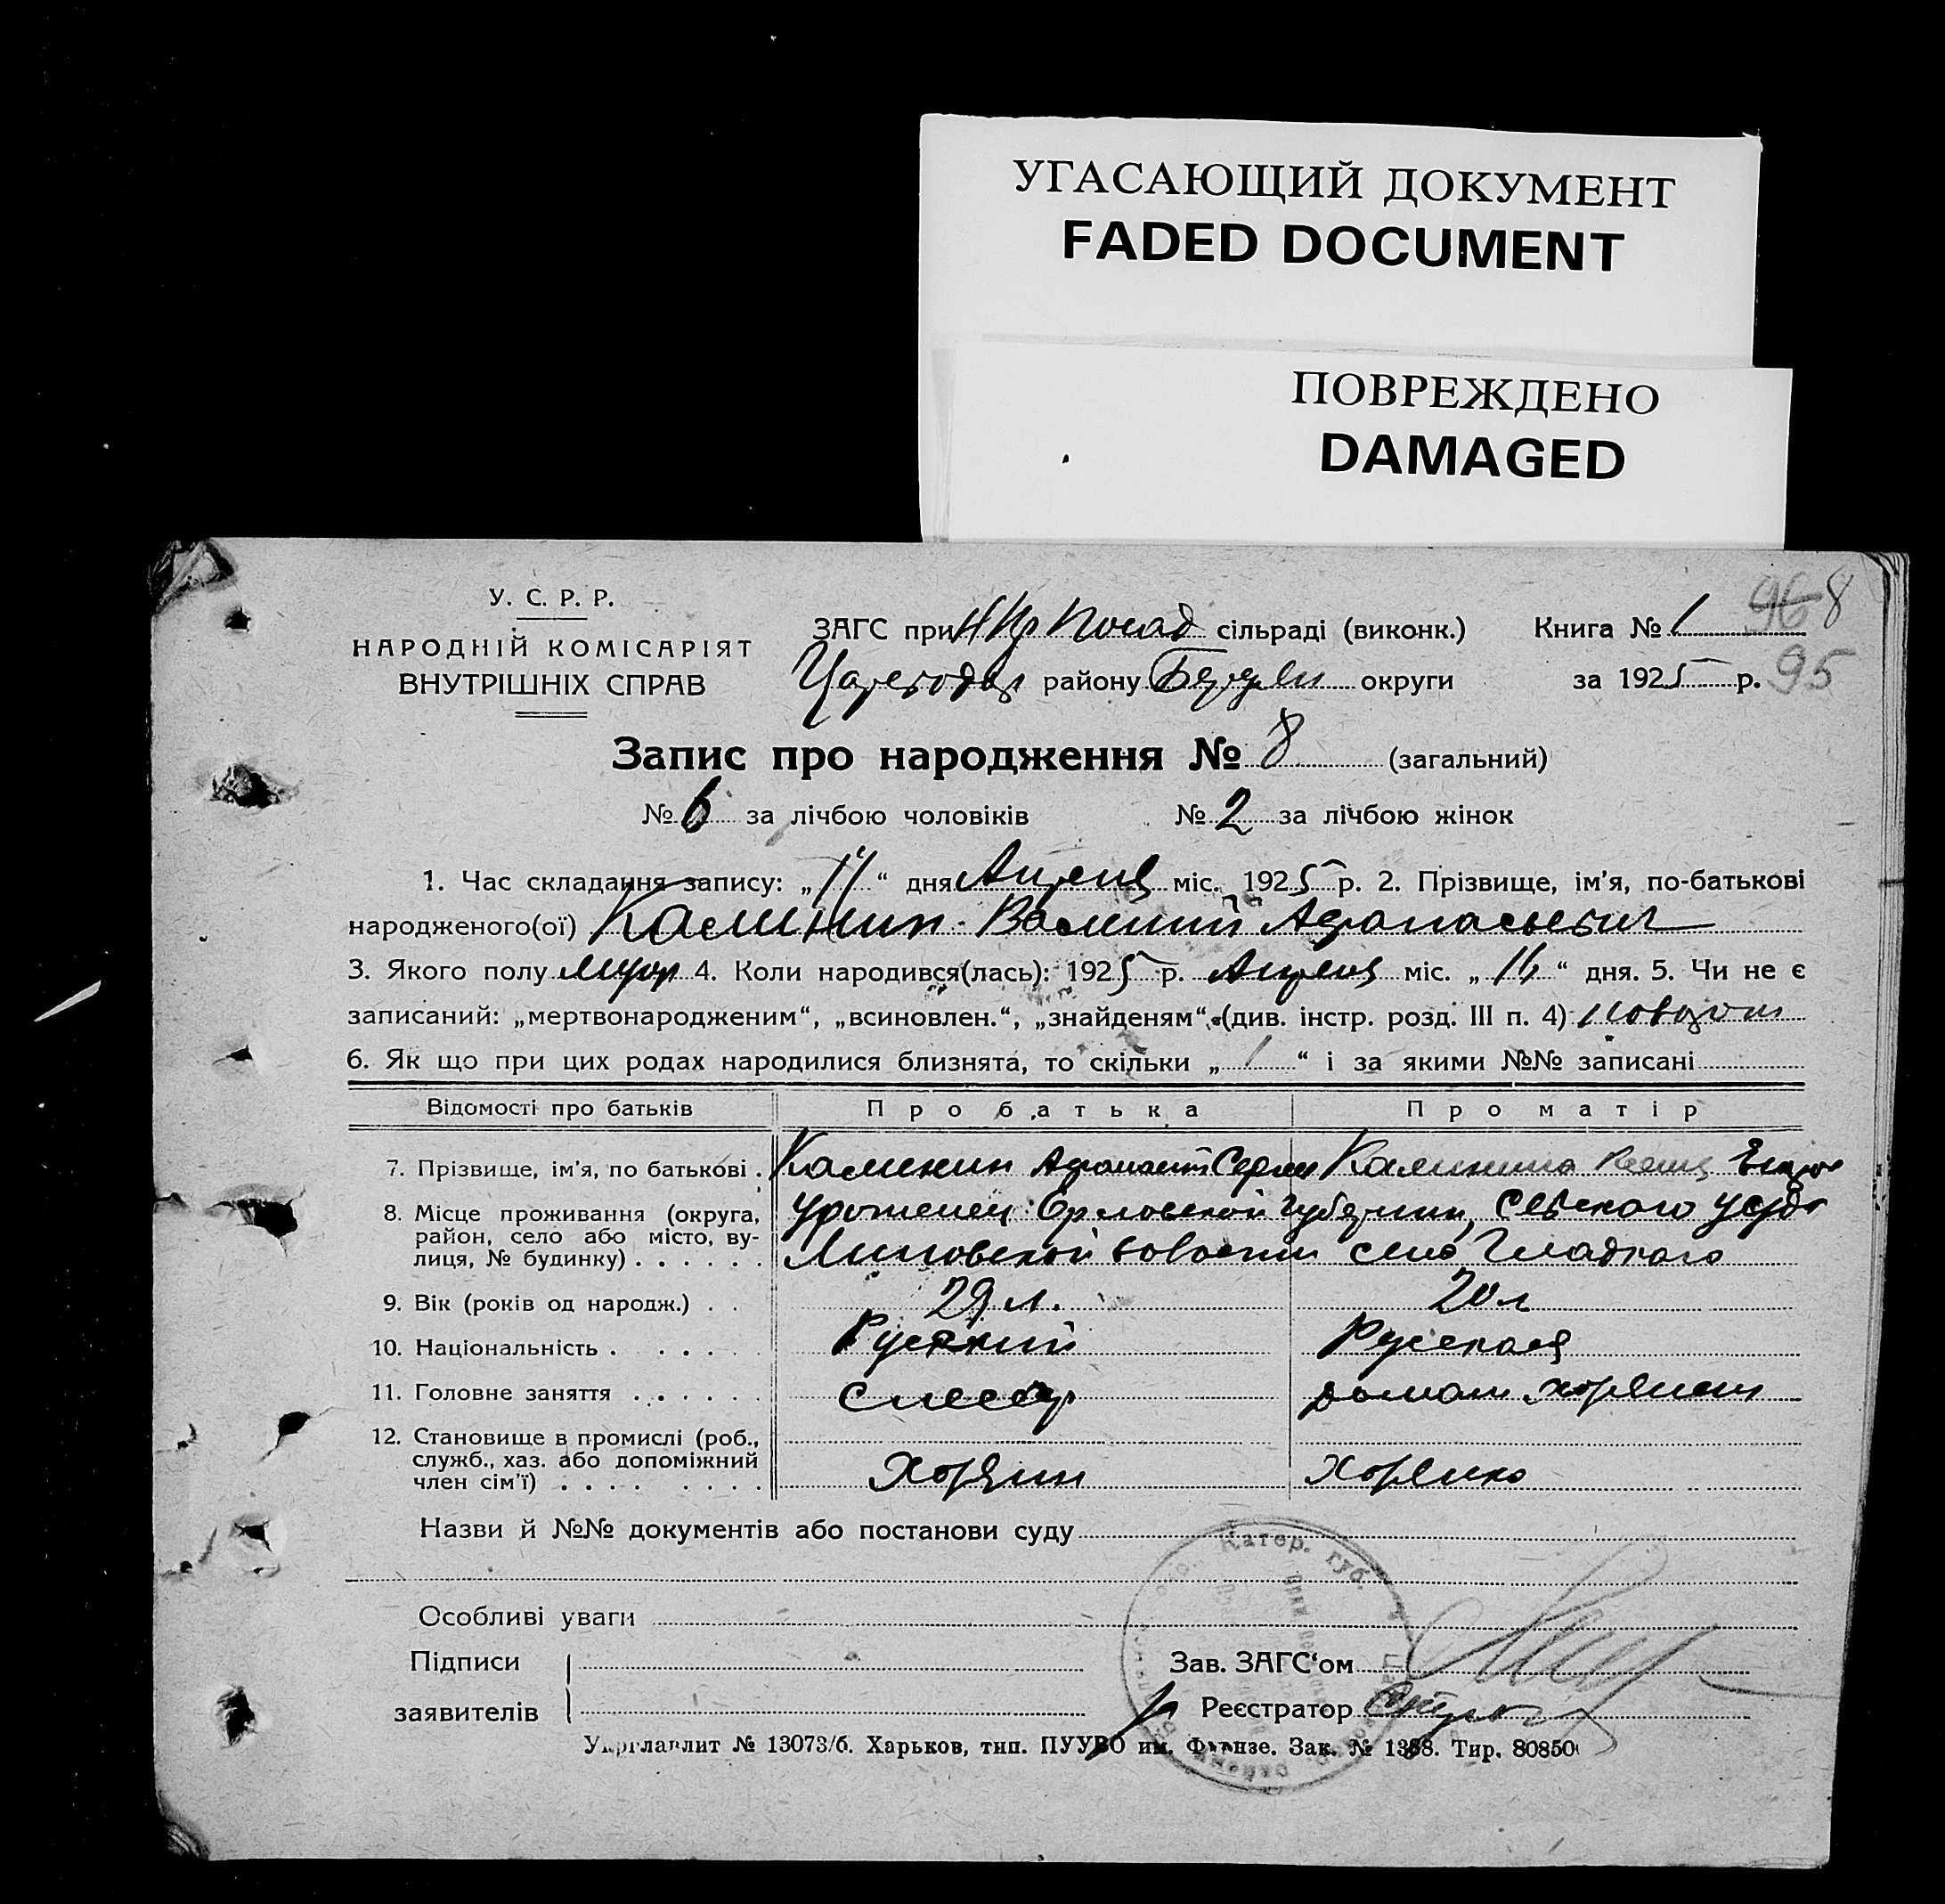 УГАСАЮЩИЙ ДОКУМЕНТ
FADED DOCUMENT
ПОВРЕЖДЕНО
DAMAGED
У. С. Р. Р.
НАРОДНІЙ КОМІСАРІЯТ
ВНУТРІШНІХ СПРАВ
ЗАГС при Посад сільраді (виконк.) Книга № 1 96 8
району Бердян округи за 1925 р. 95
Запис про народження № 8 (загальний)
№ 6 за лічбою чоловіків № 2 за лічбою жінок
1. Час складання запису: „ “ дня Апреля міс. 1925 р. 2. Прізвище, ім'я, по-батькові
народженого(ої) Калинин Василий Афанасьевич
3. Якого полу 4. Коли народився(лась): 1925 р. Апреля міс. „ “ дня. 5. Чи не є
записаний: „мертвонародженим“, „всиновлен.“, „знайденям“ (див. інстр. розд. III п. 4)
6. Як що при цих родах народилися близнята, то скільки „ 1 “ і за якими №№ записані
Відомості про батьків Про батька Про матір
7. Прізвище, ім'я, по батькові . Калинин Афанасий Сергеев Калинина
8. Місце проживання (округа, район, село або місто, вулиця, № будинку) . . . . . . Уроженец Орловской Губернии, Севского уезда
волости село Гладкого
9. Вік (років од народж.) . . 29 л. 20 л
10. Національність . . . . . . Русский Русская
11. Головне заняття . . . . . . Слесар домаш хозяист
12. Становище в промислі (роб., служб., хаз. або допоміжний член сім'ї) . . . . . . . . Хозяин Хозяйка
Назви й №№ документів або постанови суду
Особливі уваги
Підписи
заявителів
Катер. губ.
Зав. ЗАГС‘ом
Реєстратор
Укрглавлит № 13073/б. Харьков, тип. ПУУВО им. Фрунзе. Зак. № 1388. Тир. 80850